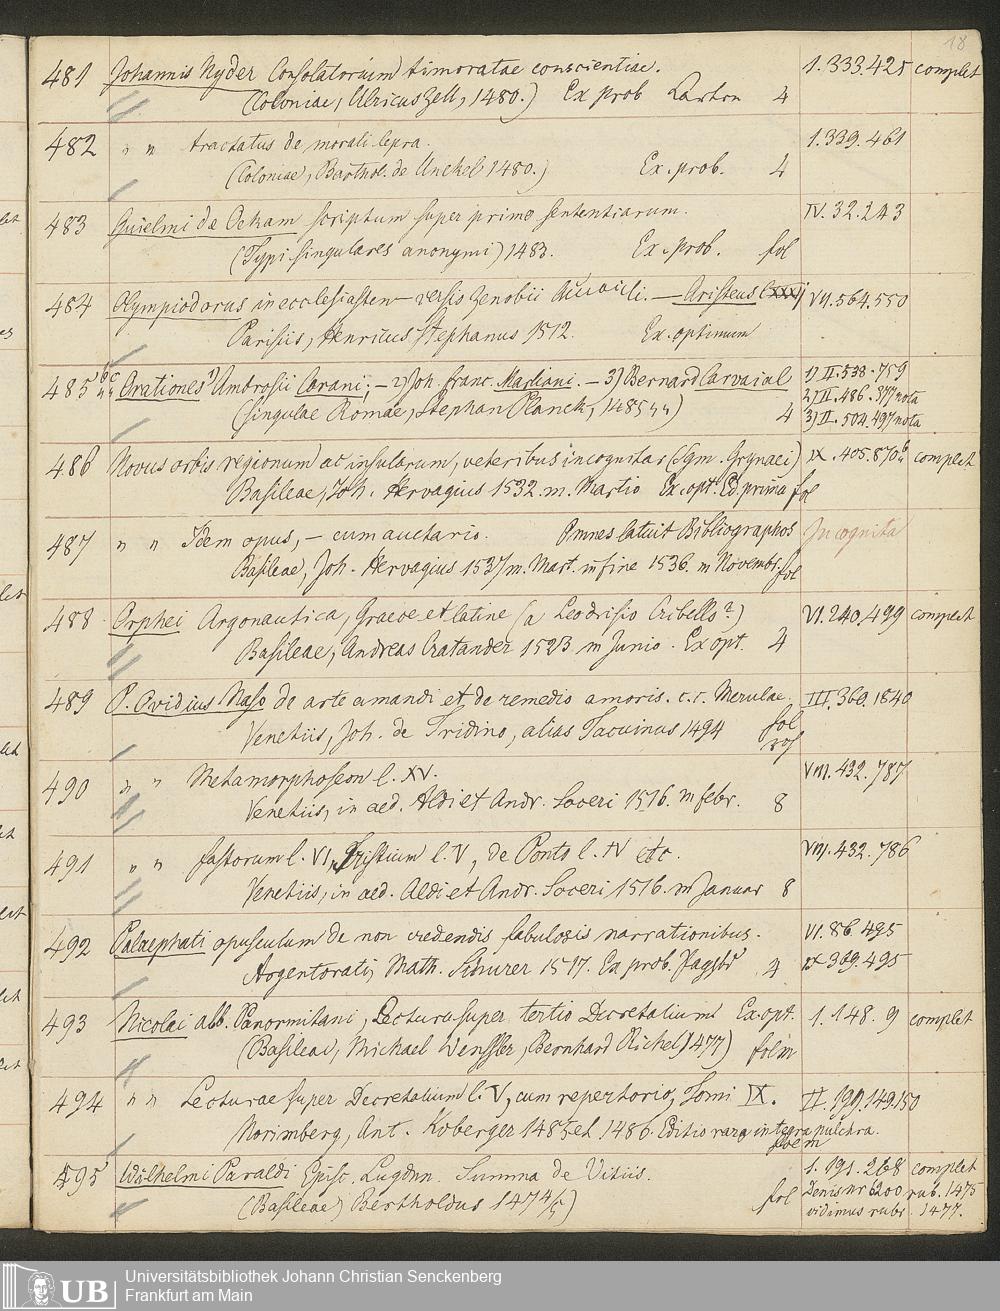 18
481 Johannis Nyder Consolatorium timoratae conscientiae. 1.333.425 complet
(Coloniae, Ulricus Zell, 1480.) Ex prob 4
482 " " tractatus de morali lepra. 1.339.461
(Coloniae, Barthol. de Unckel 1480.) Ex. prob. 4
483 Guielmi de Ockam scriptum super primo sententiarum. IV. 32.243
(Typi singulares anonymi) 1483. Ex. prob. fol
484 Olympiodorus in ecclesiasten — versis Zenobii — Aristeus VII.564.550
Parisiis, Henricus Stephanus 1512. Ex. optimum
485 b c Orationes 1) Ambrosii Corani; — 2) Joh. franc. Marliani. — 3) Bernard Carvaial 1) II.538.759
2) II.486.377 nota
(singulae Romae, Stephan Planck, 1485 „„) 4 3) II.504.497 nota
486 Novus orbis regionum ac insularum, veteribus incognitar (Sym. Grynaei) IX.405.870 b complet
Basileae, Joh. Hervagius 1532. m. Martio Ex. opt. Ed. prima fol
487 " " Idem opus, — cum auctario. Omnes latuit Bibliographos Incognita
Basileae, Joh. Hervagius 1537 m. Mart. in fine 1536. m Novembr. fol
488 Orphei Argonautica, Graece et latine (a Leodrisio Cribells?) VI.240.499 complet
Basileae, Andreas Cratander 1523 m Junio. Ex opt. 4
489 P. Ovidius Naso de arte amandi et de remedio amoris. c.c. Merulae. III.360.1840
Venetiis, Joh. de Tridino, alias Tacuinus 1494 fol
490 " " Metamorphoseon l. XV. VIII.432.787
Venetiis, in aed. Aldi et Andr. Soceri 1516. m febr. 8
491 " " fastorum l. VI, Tristium l. V, de Ponto l. IV etc. VIII.432.786
Venetiis, in aed. Aldi et Andr. Soceri 1516. m Januar 8
492 Palaephati opusculum de non credendis fabulosis narrationibus. VI.86.495
Argentorati, Math. Schurer 1517. Ex prob. 4 IX 369.495
493 Nicolai abb. Panormitani, Lectura super tertio Decretalium Ex opt. 1.148.9 complet
(Basileae, Michael Wenssler, Bernhard Richel 1477) fol m
494 " " Lecturae super Decretalium l. V, cum repertorio, Tomi IX. II.199.149.150
Norimberg, Ant. Koberger 1485 et 1486. Editio rara integra pulchra.
495 Wilhelmi Paraldi Episc. Lugdun Summa de Vitiis. 1.191.268 complet
fol Denis nr 6200 rub. 1475
(Basileae) Bertholdus 1474/5) vidimus rubr. 1477.
UB
Universitätsbibliothek Johann Christian Senckenberg
Frankfurt am Main